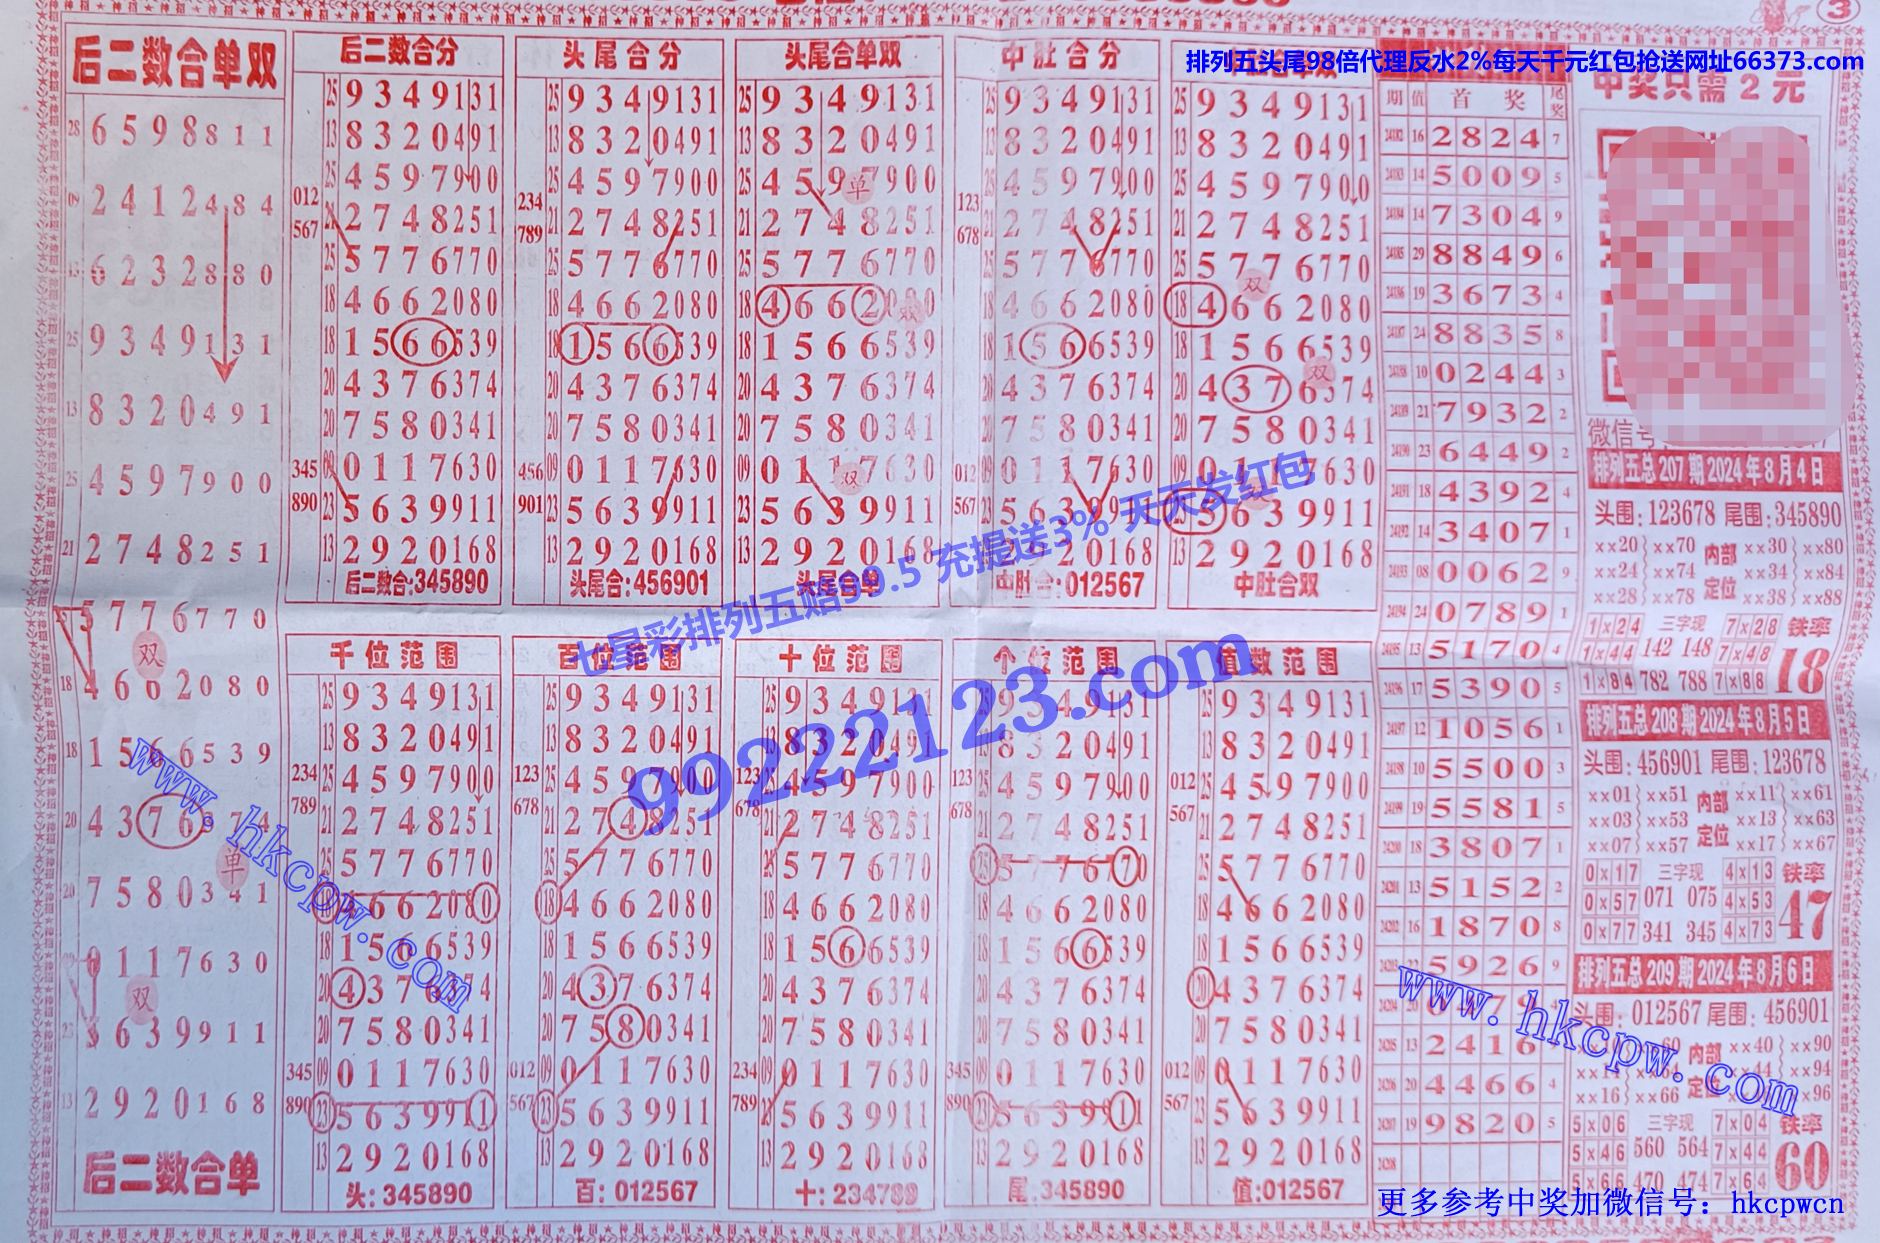 3
排列五头尾98倍代理反水2%每天千元红包抢送网址66373.com
中奖只需2元
后二数合单双
28 6598811
09 2412484
13 6232880
25 9349131
13 8320491
25 4597900
21 2748251
5776770
双
18 4662080
18 1566539
20 4376374
单
20 7580341
0117630
双
5639911
13 2920168
后二数合单
后二数合分
25 9349131
13 8320491
25 4597900
012
567
21 2748251
25 5776770
18 4662080
18 1566539
20 4376374
20 7580341
345
890
09 0117630
23 5639911
13 2920168
后二数合:345890
头尾合分
25 9349131
13 8320491
25 4597900
234
789
21 2748251
25 5776770
18 4662080
18 1566539
20 4376374
20 7580341
456
901
09 0117630
23 5639911
13 2920168
头尾合:456901
头尾合单双
25 9349131
13 8320491
25 4597900
单
21 2748251
25 5776770
18 4662080
双
18 1566539
20 4376374
20 7580341
09 0117630
双
23 5639911
13 2920168
头尾合单
中肚合分
25 9349131
13 8320491
25 4597900
123
678
21 2748251
25 5776770
18 4662080
18 1566539
20 4376374
20 7580341
012
567
09 0117630
23 5639911
13 2920168
中肚合:012567
25 9349131
13 8320491
25 4597900
21 2748251
25 5776770
双
18 4662080
18 1566539
双
20 4376374
20 7580341
09 0117630
23 5639911
13 2920168
中肚合双
千位范围
25 9349131
13 8320491
25 4597900
234
789
21 2748251
25 5776770
18 4662080
18 1566539
20 4376374
20 7580341
345
890
09 0117630
23 5639911
13 2920168
头:345890
百位范围
25 9349131
13 8320491
25 4597900
123
678
21 2748251
25 5776770
18 4662080
18 1566539
20 4376374
20 7580341
012
567
09 0117630
23 5639911
13 2920168
百:012567
十位范围
25 9349131
13 8320491
25 4597900
123
678
21 2748251
25 5776770
18 4662080
18 1566539
20 4376374
20 7580341
234
789
09 0117630
23 5639911
13 2920168
十:234789
个位范围
25 9349131
13 8320491
25 4597900
123
678
21 2748251
25 5776770
18 4662080
18 1566539
20 4376374
20 7580341
345
890
09 0117630
23 5639911
13 2920168
尾:345890
值数范围
25 9349131
13 8320491
25 4597900
012
567
21 2748251
25 5776770
18 4662080
18 1566539
20 4376374
20 7580341
012
567
09 0117630
23 5639911
13 2920168
值:012567
期 值 首奖 尾奖
24182 16 2824 7
24183 14 5009 5
24184 14 7304 9
24185 29 8849 6
24186 19 3673 4
24187 24 8835 8
24188 10 0244 3
24189 21 7932 2
24190 23 6449 2
24191 18 4392 4
24192 14 3407 1
24193 08 0062 9
24194 24 0789 1
24195 13 5170 4
24196 17 5390 5
24197 12 1056 1
24198 10 5500 3
24199 19 5581 5
24200 18 3807 1
24201 13 5152 2
24202 16 1870 8
24203 22 5926 9
24205 13 2416
24206 20 4466 4
24207 19 9820 5
24208
微信号
排列五总207期2024年8月4日
头围:123678 尾围:345890
xx20 xx70 内部 xx30 xx80
xx24 xx74 xx34 xx84
xx28 xx78 定位 xx38 xx88
1x24 三字现 7x28 铁率
1x44 142 148 7x48 18
1x84 782 788 7x88
排列五总208期2024年8月5日
头围:456901 尾围:123678
xx01 xx51 内部 xx11 xx61
xx03 xx53 定位 xx13 xx63
xx07 xx57 xx17 xx67
0x17 三字现 4x13 铁率
0x57 071 075 4x53 47
0x77 341 345 4x73
排列五总209期2024年8月6日
头围:012567 尾围:456901
内部 xx40 xx90
定位 xx44 xx94
xx16 xx66 xx96
5x06 三字现 7x04 铁率
5x46 560 564 7x44 60
5x66 470 474 7x64
七星彩排列五赔99.5 充提送3% 天天发红包
99222123.com
www.hkcpw.com
www.hkcpw.com
更多参考中奖加微信号：hkcpwcn